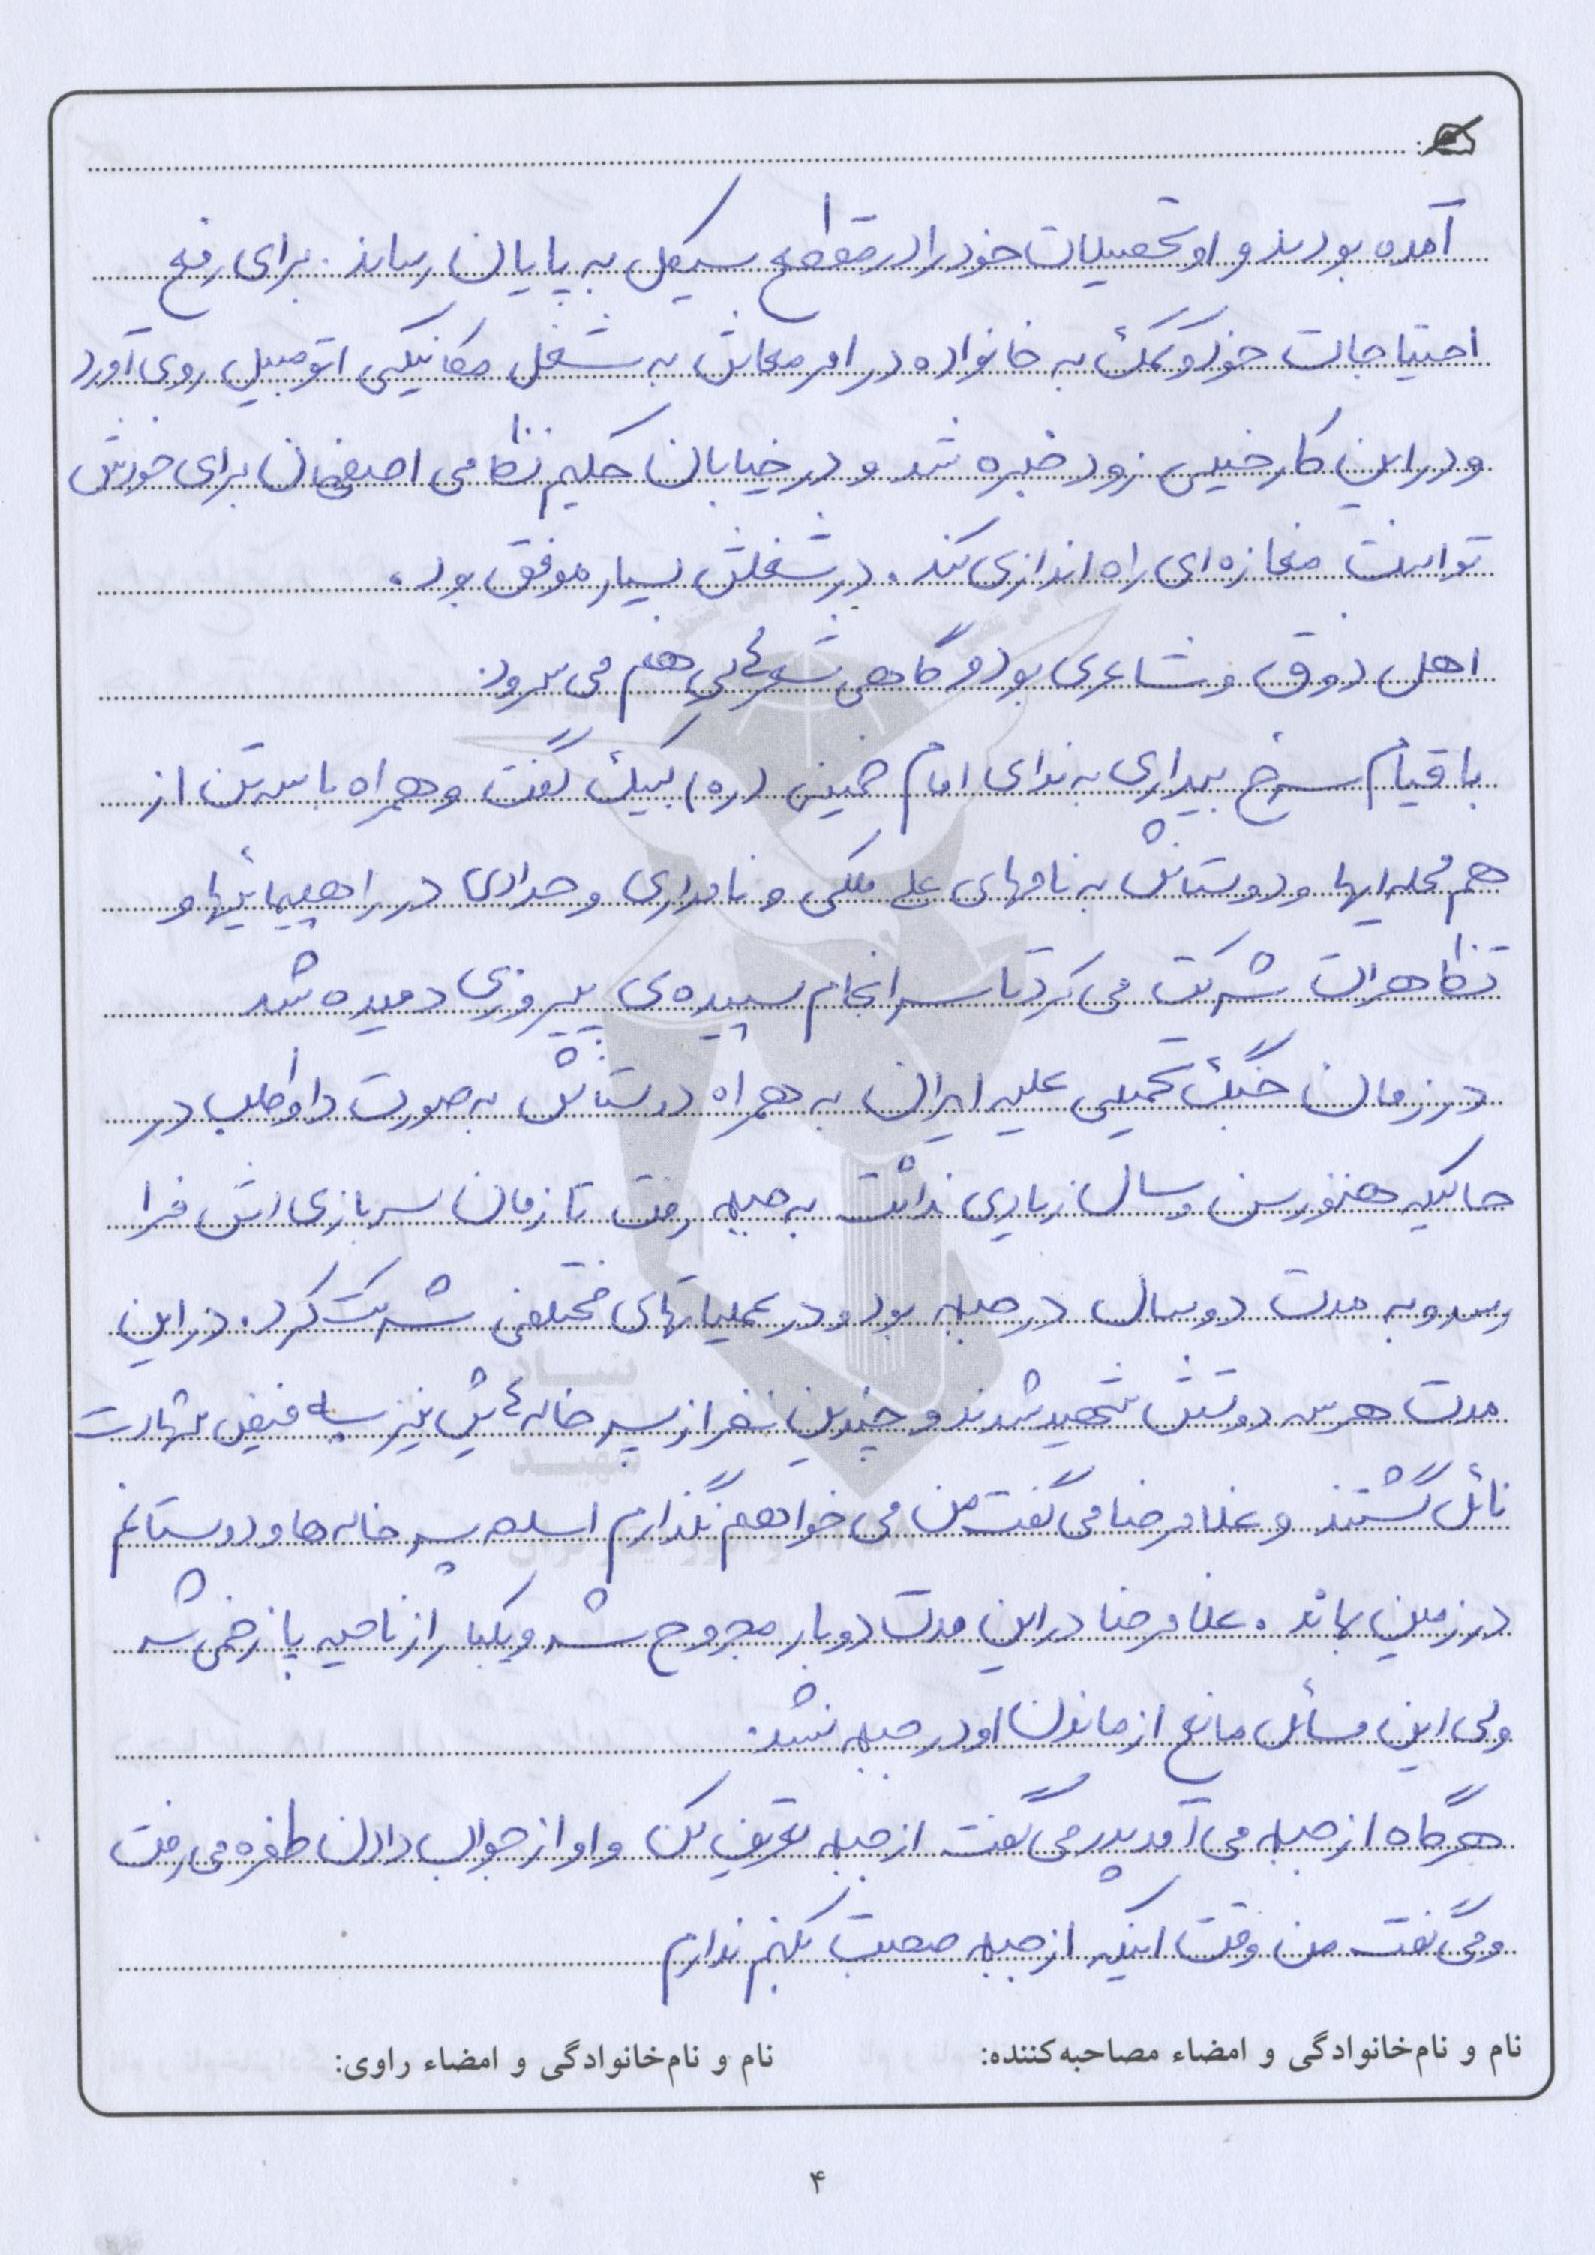 آمده بودند و او تحصیلات خود را در مقطع سیکل به پایان رساند. برای رفع
احتیاجات خود و کمک به خانواده در امر معاش به شغل مکانیکی اتومبیل روی آورد
و در این کار خیلی زود خبره شد و در خیابان حکیم نظامی اصفهان برای خودش
توانست مغازه‌ای راه اندازی کند. در شغلش بسیار موفق بود.
اهل ذوق و شاعری بود و گاهی شعرهایی هم می سرود.
با قیام سرخ بیداری به ندای امام خمینی (ره) لبیک گفت و همراه با سه تن از
هم محله ایها و دوستانش به نامهای علی ملکی و نامداری و حدادی در راهپیمائیها و
تظاهرات شرکت می کرد تا سرانجام سپیده‌ی پیروزی دمیده شد
در زمان جنگ تحمیلی علیه ایران به همراه دوستانش به صورت داوطلب در
حالیکه هنوز سن و سال زیادی نداشت به جبهه رفت تا زمان سربازی اش فرا
رسد و به مدت دو سال در جبهه بود و در عملیاتهای مختلفی شرکت کرد. در این
مدت هر سه دوستش شهید شدند و چندین نفر از پسر خاله هایش نیز به فیض شهادت
نائل گشتند و غلامرضا می گفت من می خواهم نگذارم اسلحه پسر خاله ها و دوستانم
در زمین بماند. غلامرضا در این مدت دوبار مجروح شد و یکبار از ناحیه پا زخمی شد
ولی این مسائل مانع از ماندن او در جبهه نشد.
هرگاه از جبهه می آمد پدر می گفت از جبهه تعریف کن و او از جواب دادن طفره می رفت
و می گفت من وقت اینکه از جبهه صحبت بکنم ندارم
نام و نام‌خانوادگی و امضاء مصاحبه‌کننده: نام و نام‌خانوادگی و امضاء راوی:
۴